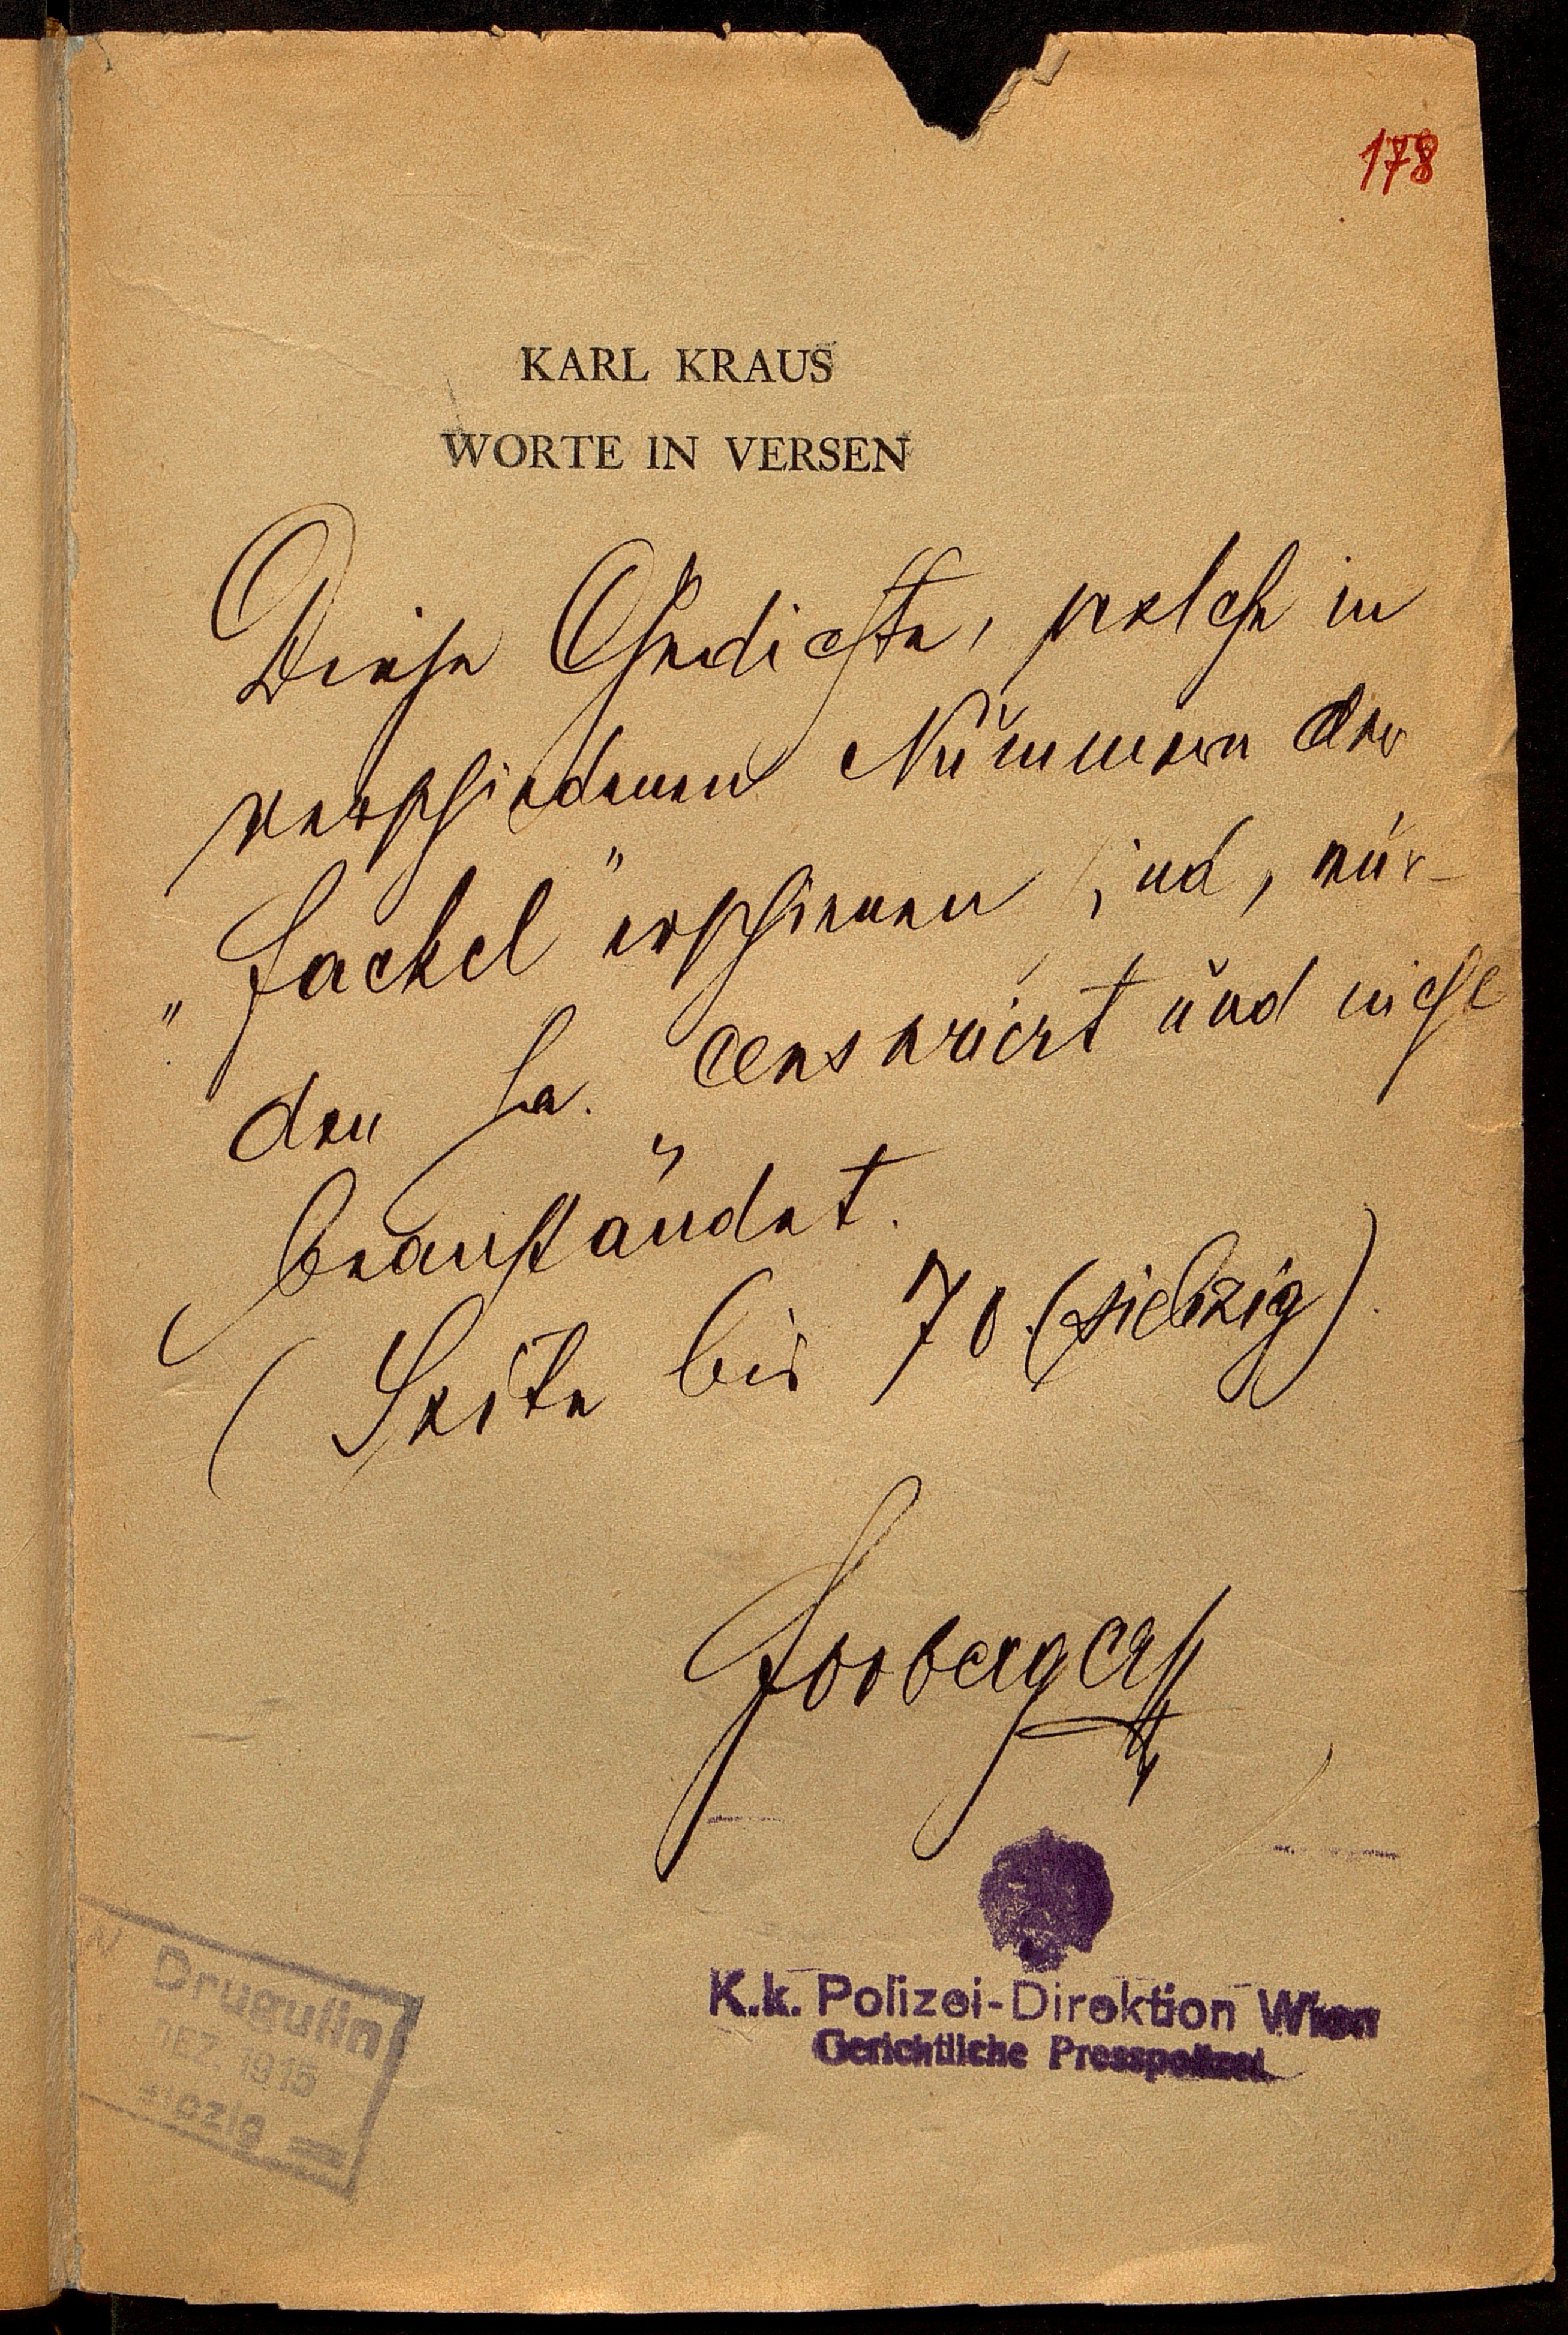 178
KARL KRAUS
WORTE IN VERSEN
Diese Gedichte, welche in
verschiedenen Nummern der
„Fackel" erschienen sind, wur-
den ha. censuriert und nicht
beanständet.
(Seite bis 70 (siebzig).
Drugulin
DEZ. 1915
K.k. Polizei-Direktion Wien
Gerichtliche Presspolizei